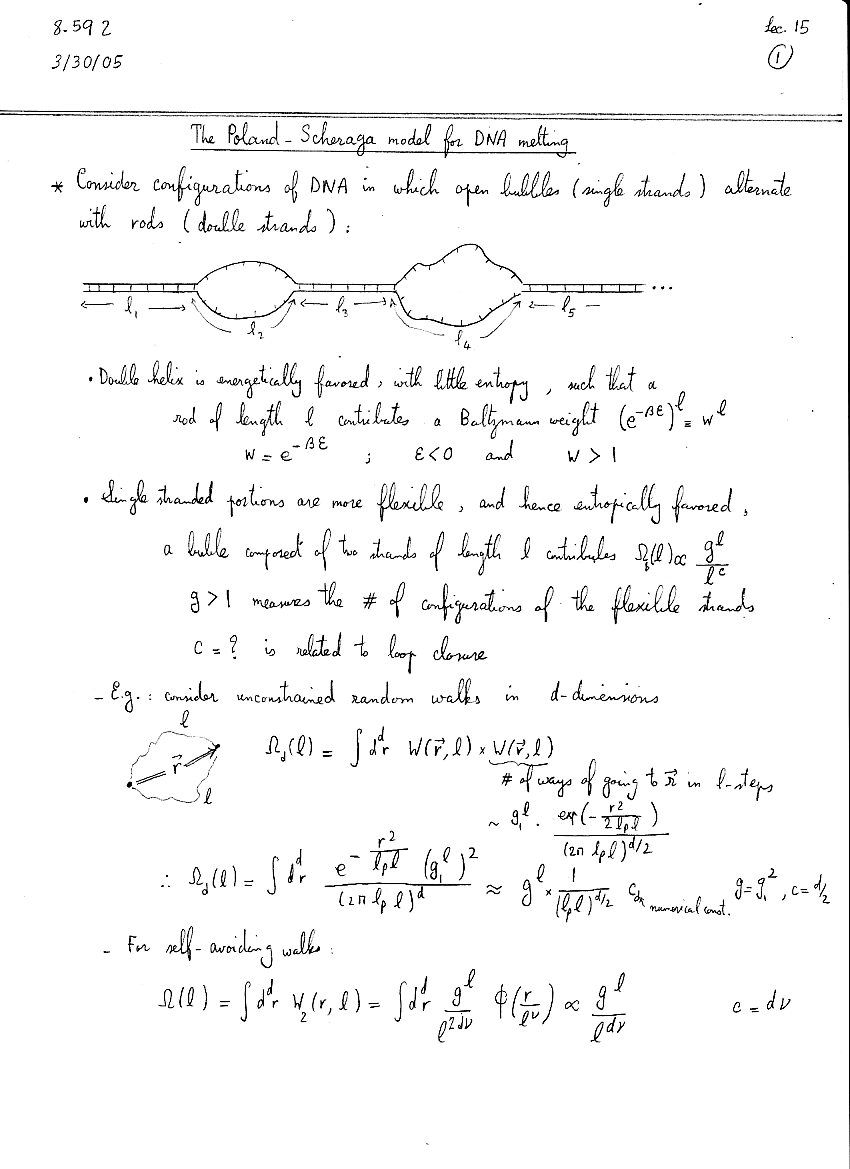 8.592
Lec. 15
3/30/05
1
The Poland-Scheraga model for DNA melting
* Consider configurations of DNA in which open bubbles (single strands) alternate
with rods (double strands):
l₁ l₂ l₃ l₄ l₅ ...
• Double helix is energetically favored, with little entropy, such that a
rod of length l contributes a Boltzmann weight (e^{-βε})^l ≡ w^l
w = e^{-βε} ; ε<0 and w>1
• Single stranded portions are more flexible, and hence entropically favored,
a bubble composed of two strands of length l contributes Ω_b(l) ∝ g^l / l^c
g>1 measures the # of configurations of the flexible strands
c = ? is related to loop closure
- E.g.: consider unconstrained random walks in d-dimensions
l r⃗ l
Ω_d(l) = ∫ d^d r W(r⃗, l) × W(r⃗, l)
# of ways of going to r⃗ in l-steps
~ g₁^l · exp(-r²/(2 l_p l)) / (2π l_p l)^{d/2}
∴ Ω_d(l) = ∫ d^d r e^{-r²/(l_p l)} (g₁^l)² / (2π l_p l)^d ≈ g^l × 1/(l_p l)^{d/2} C_d numerical const. g = g₁², c = d/2
- For self-avoiding walks:
Ω(l) = ∫ d^d r W₂(r, l) = ∫ d^d r g^l / l^{2dν} Φ(r/l^ν) ∝ g^l / l^{dν} c = dν